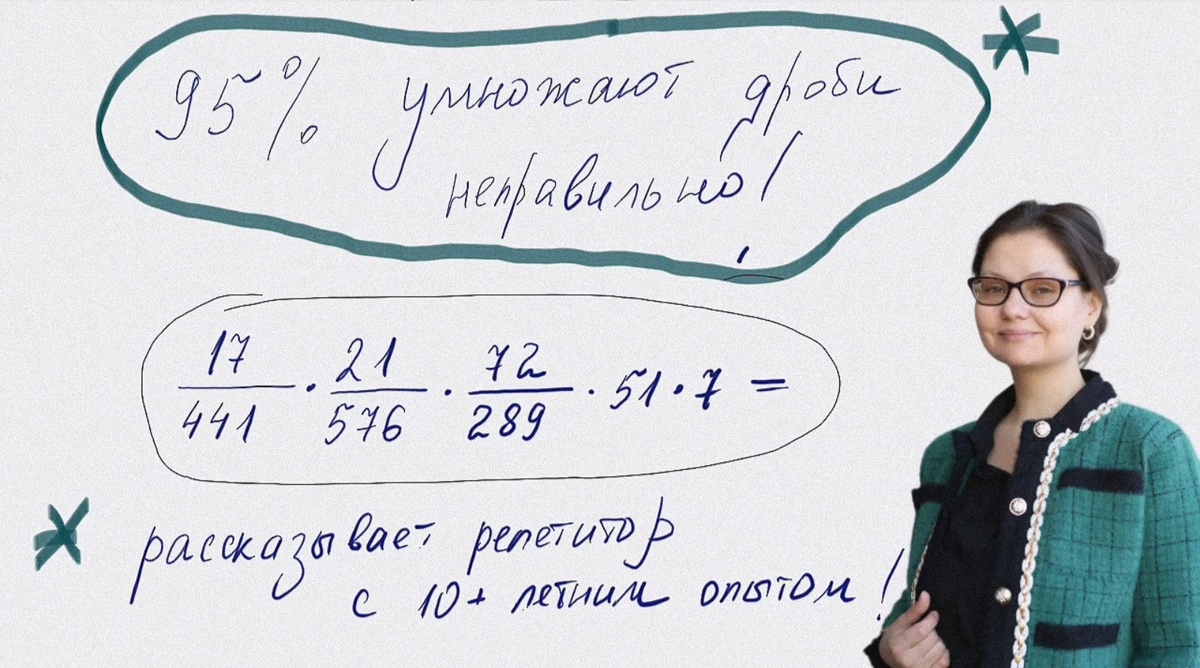 95% умножают дроби
неправильно!
17/441 · 21/576 · 72/289 · 51 · 7 =
рассказывает репетитор
с 10+ летним опытом!